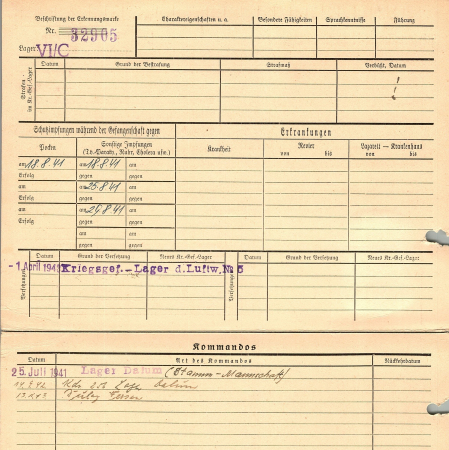 Beschriftung der Erkennungsmarke
Nr. 32905
Lager VI/C
Charaktereigenschaften u. a.
Besondere Fähigkeiten
Sprachkenntnisse
Führung
Strafen im Kr.-Gef.-Lager
Datum
Grund der Bestrafung
Strafmaß
Verbüßt, Datum
Schutzimpfungen während der Gefangenschaft gegen
Erkrankungen
Pocken
Sonstige Impfungen
(Ty.-Paraty., Ruhr, Cholera usw.)
Krankheit
Revier
von bis
Lazarett — Krankenhaus
von bis
am 18.8.41 am 18.8.41 am
Erfolg gegen gegen
am am 25.8.41 am
Erfolg gegen gegen
am am 29.8.41 am
Erfolg gegen gegen
am am
gegen gegen
Versetzungen
Datum
Grund der Versetzung
Neues Kr.-Gef.-Lager
Versetzungen
Datum
Grund der Versetzung
Neues Kr.-Gef.-Lager
-1. April 194 Kriegsgef.-Lager d. Luftw. № 5
Kommandos
Datum
Art des Kommandos
Rückkehrdatum
25. Juli 1941 Lager Datum (Stamm-Mannschaft)
Kdo